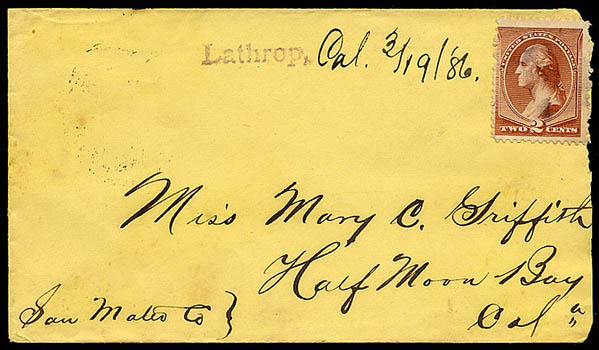 Lathrop, Cal. 3/19/86.
UNITED STATES POSTAGE
TWO 2 CENTS
Miss Mary C. Griffith
Half Moon Bay
San Mateo Co } Cal a "